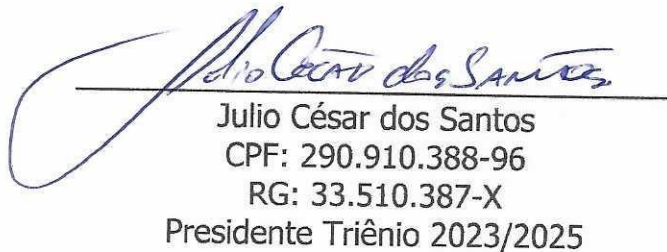 Julio César dos Santos
Julio César dos Santos
CPF: 290.910.388-96
RG: 33.510.387-X
Presidente Triênio 2023/2025